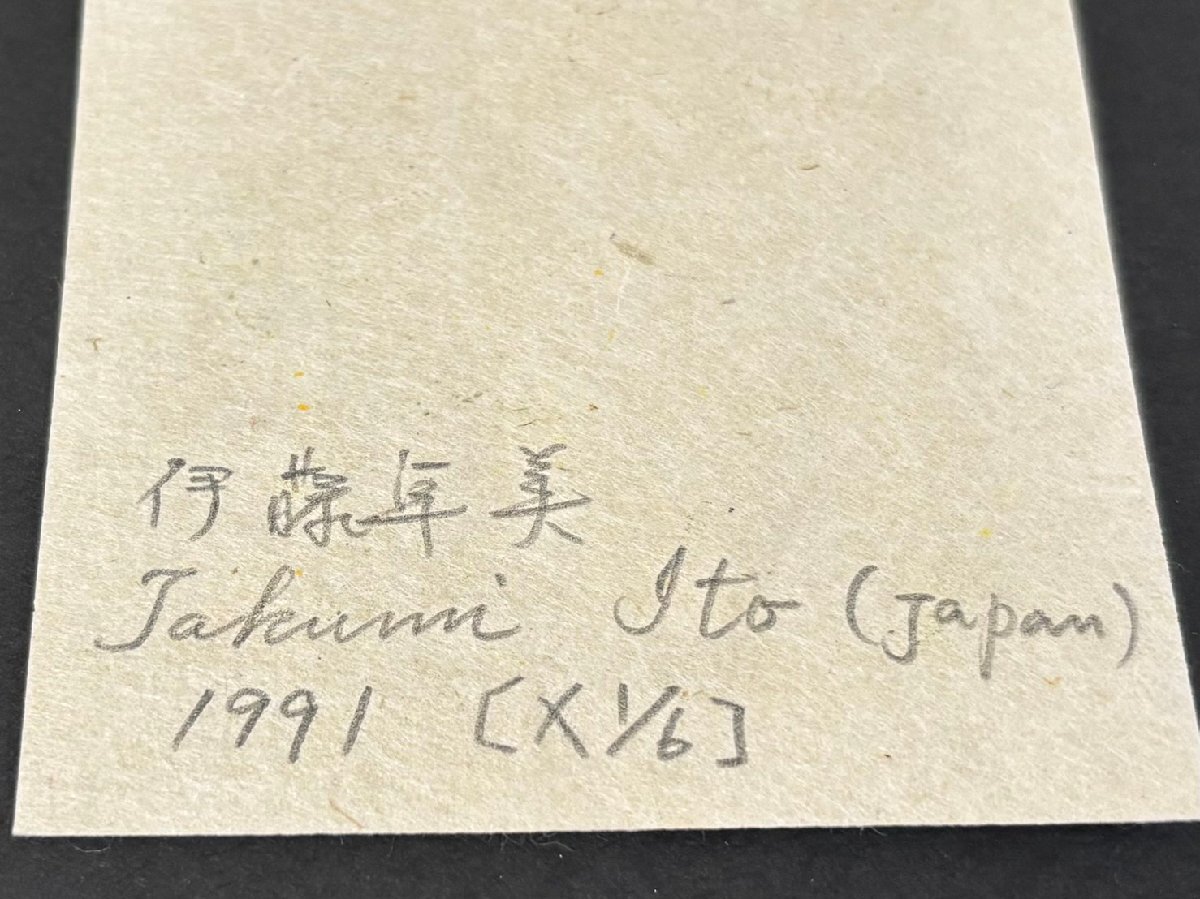 伊藤卓美
Takumi Ito (Japan)
1991 [X 1/6]